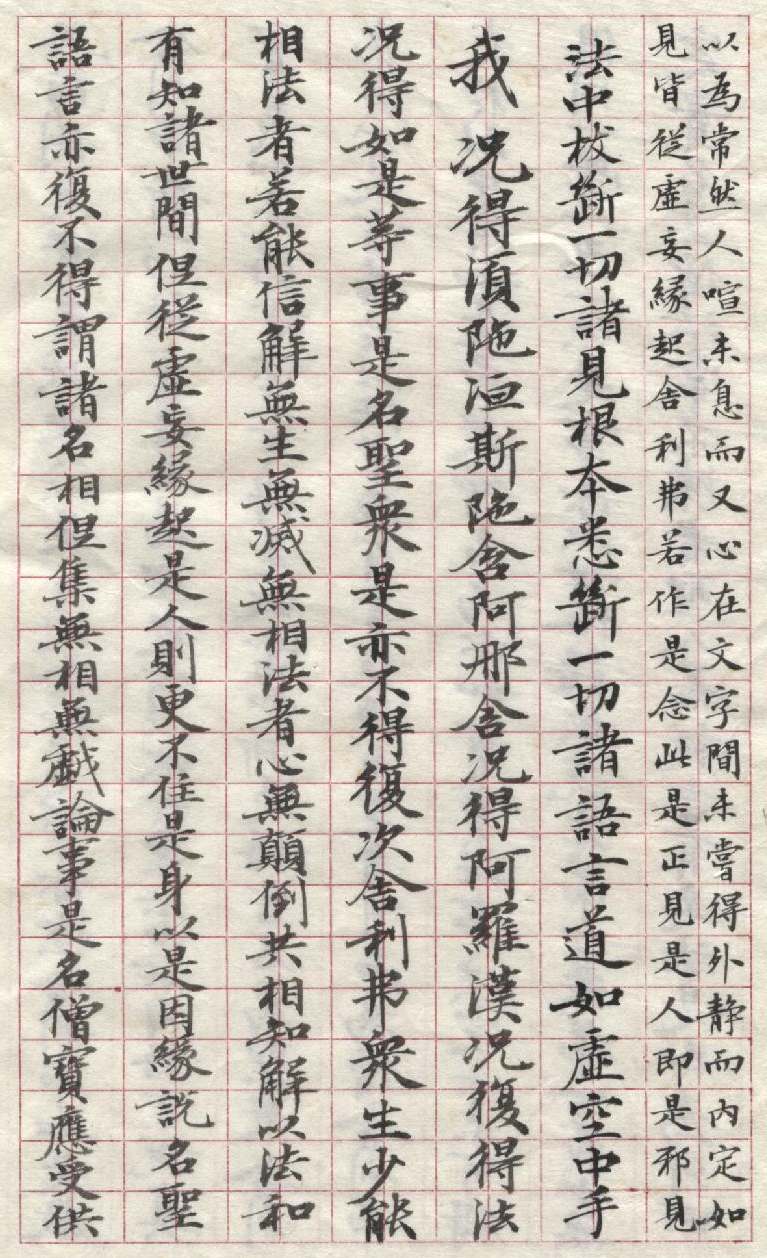 以為常然人喧未息而又心在文字間未嘗得外靜而內定如
見皆從虛妄緣起舍利弗若作是念此是正見是人即是邪見
法中拔斷一切諸見根本悉斷一切諸語言道如虛空中手
我況得須陁洹斯陁含阿那含況得阿羅漢況復得法
況得如是等事是名聖衆是亦不得復次舍利弗衆生少能
相法者若能信解無生無滅無相法者心無顛倒共相知解以法和
有知諸世間但從虛妄緣起是人則更不住是身以是因緣説名聖
語言亦復不得謂諸名相但集無相無戲論事是名僧寶應受供